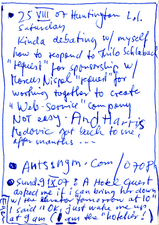 25 VIII 07 Huntington L.I.
Saturday
Kinda debating w/ myself
how to respond to Thilo Schlabach
"request" for sponsorship w/
Marcus Nispel "request" for
working together to create
"Web-Service" company
Not easy. And Harris
Redovic got back to me,
after months ---
Antssgm.com/0708
Sund. 9 IX 07 A Hotel Guest
asked me if i can bring her down
w/ the elevator tomorrow at 10
I said "Ok, just wake me up
at 9am (I am the "hotelier")